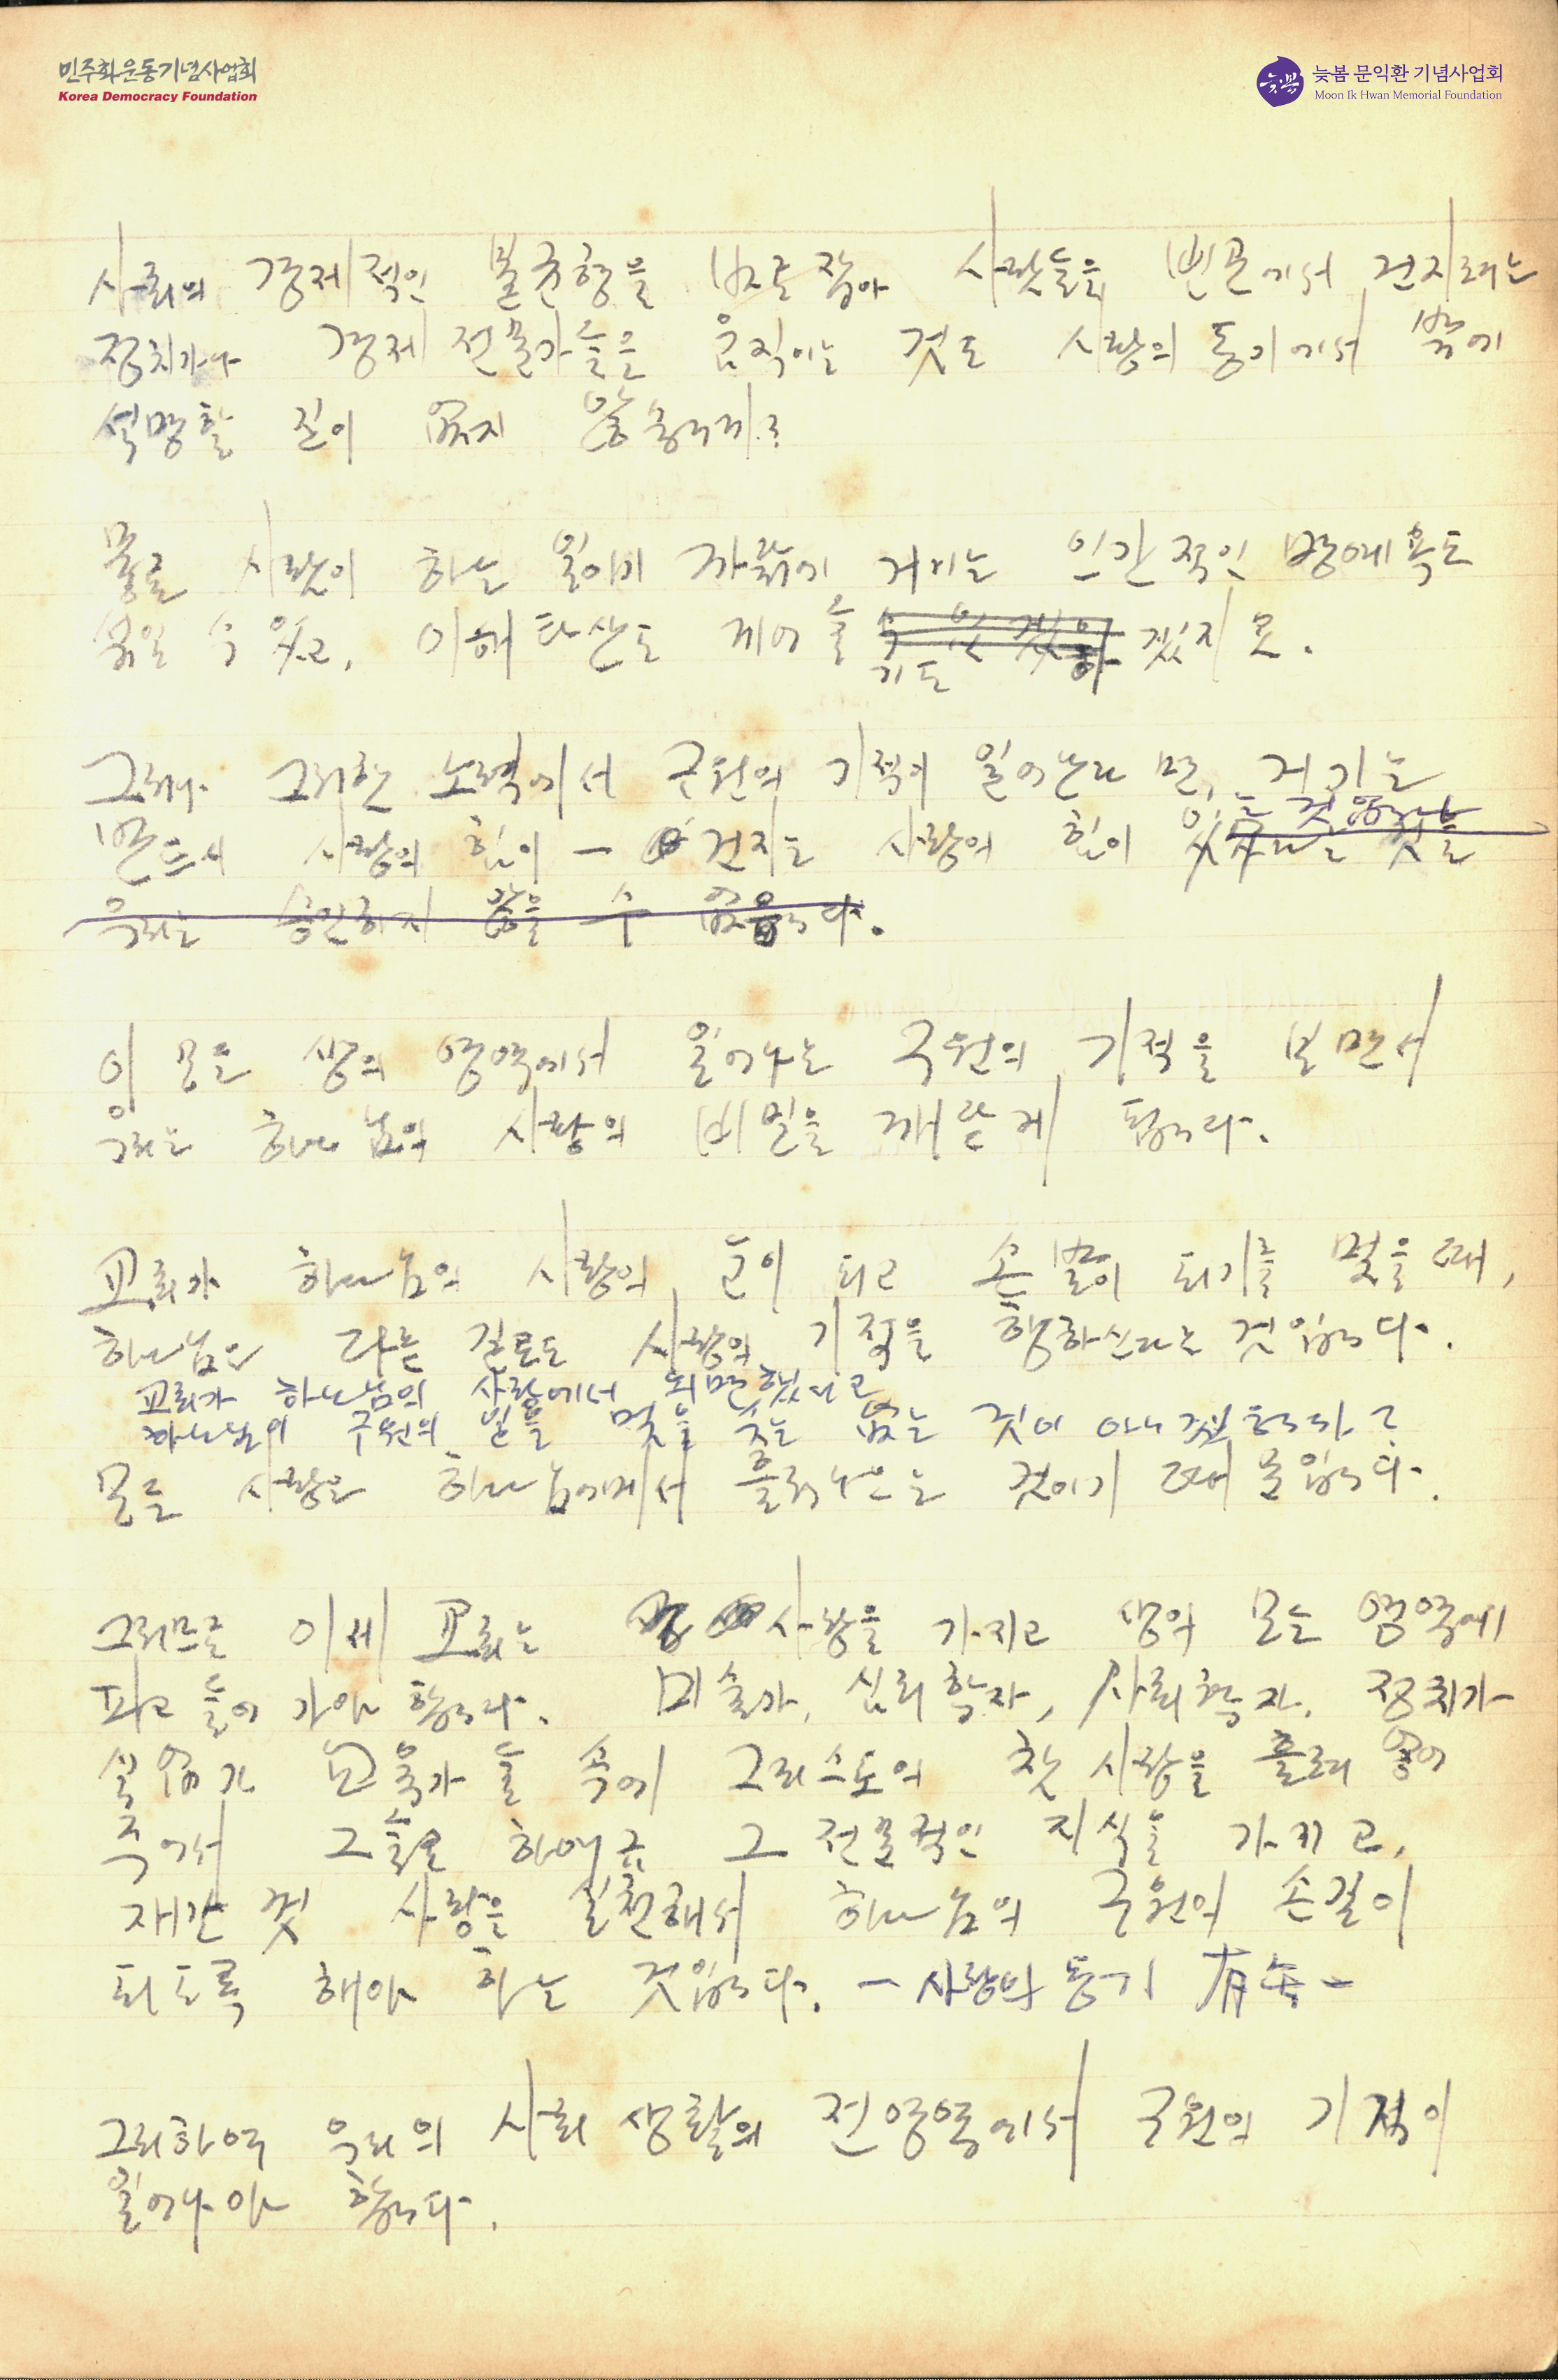 민주화운동기념사업회
Korea Democracy Foundation
늦봄 문익환 기념사업회
Moon Ik Hwan Memorial Foundation
사회의 경제적인 불균형을 바로 잡아 사람들을 빈곤에서 건지려는
정치가나 경제 전문가들을 움직이는 것도 사랑의 동기에서 밖에
설명할 길이 없지 않습니까?
물론 사람이 하는 일이기 까닭에 거기는 인간적인 명예욕도
섞일 수 있고, 이해타산도 끼어 들 수 있겠으나 기도 겠지요.
그러나 그러한 노력에서 구원의 기적이 일어난다면, 거기는
반드시 사랑의 힘이 — 건지는 사랑의 힘이 있는 것입니다
있다는 것을
우리는 승인하지 않을 수 없습니다.
이 모든 생의 영역에서 일어나는 구원의 기적을 보면서
우리는 하나님의 사랑의 비밀을 깨닫게 됩니다.
교회가 하나님의 사랑의 눈이 되고 손발이 되기를 멎을 때,
하나님은 다른 길로도 사랑의 기적을 행하신다는 것입니다.
교회가 하나님의 사랑에서 했다고
하나님의 구원의 일을 멎을 수는 없는 것이 아니겠습니까?
모든 사랑은 하나님에게서 흘러나오는 것이기 때문입니다.
그러므로 이제 교회는 사랑을 가지고 생의 모든 영역에
파고 들어 가야 합니다. 미술가, 심리학자, 사회학자, 정치가
실업가 교육가들 속에 그리스도의 참 사랑을 흘려 넣어
주어서 그들로 하여금 그 전문적인 지식을 가지고,
재간껏 사랑을 실천해서 하나님의 구원의 손길이
되도록 해야 하는 것입니다. — 사랑의 동기 有無 —
그리하여 우리의 사회생활의 전영역에서 구원의 기적이
일어나야 합니다.